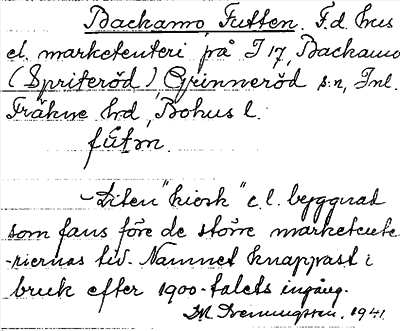 Backamo, Futten. F.d. hus
el. marketenteri på I 17, Backamo
(Spriteröd), Grinneröd s:n, Inl.
Fräkne hrd, Bohus l.
fút̀n.
Liten "kiosk" e.l. byggnad
som fans före de större marketente-
-riernas tid. Namnet knappast i
bruk efter 1900-talets ingång.
1941.